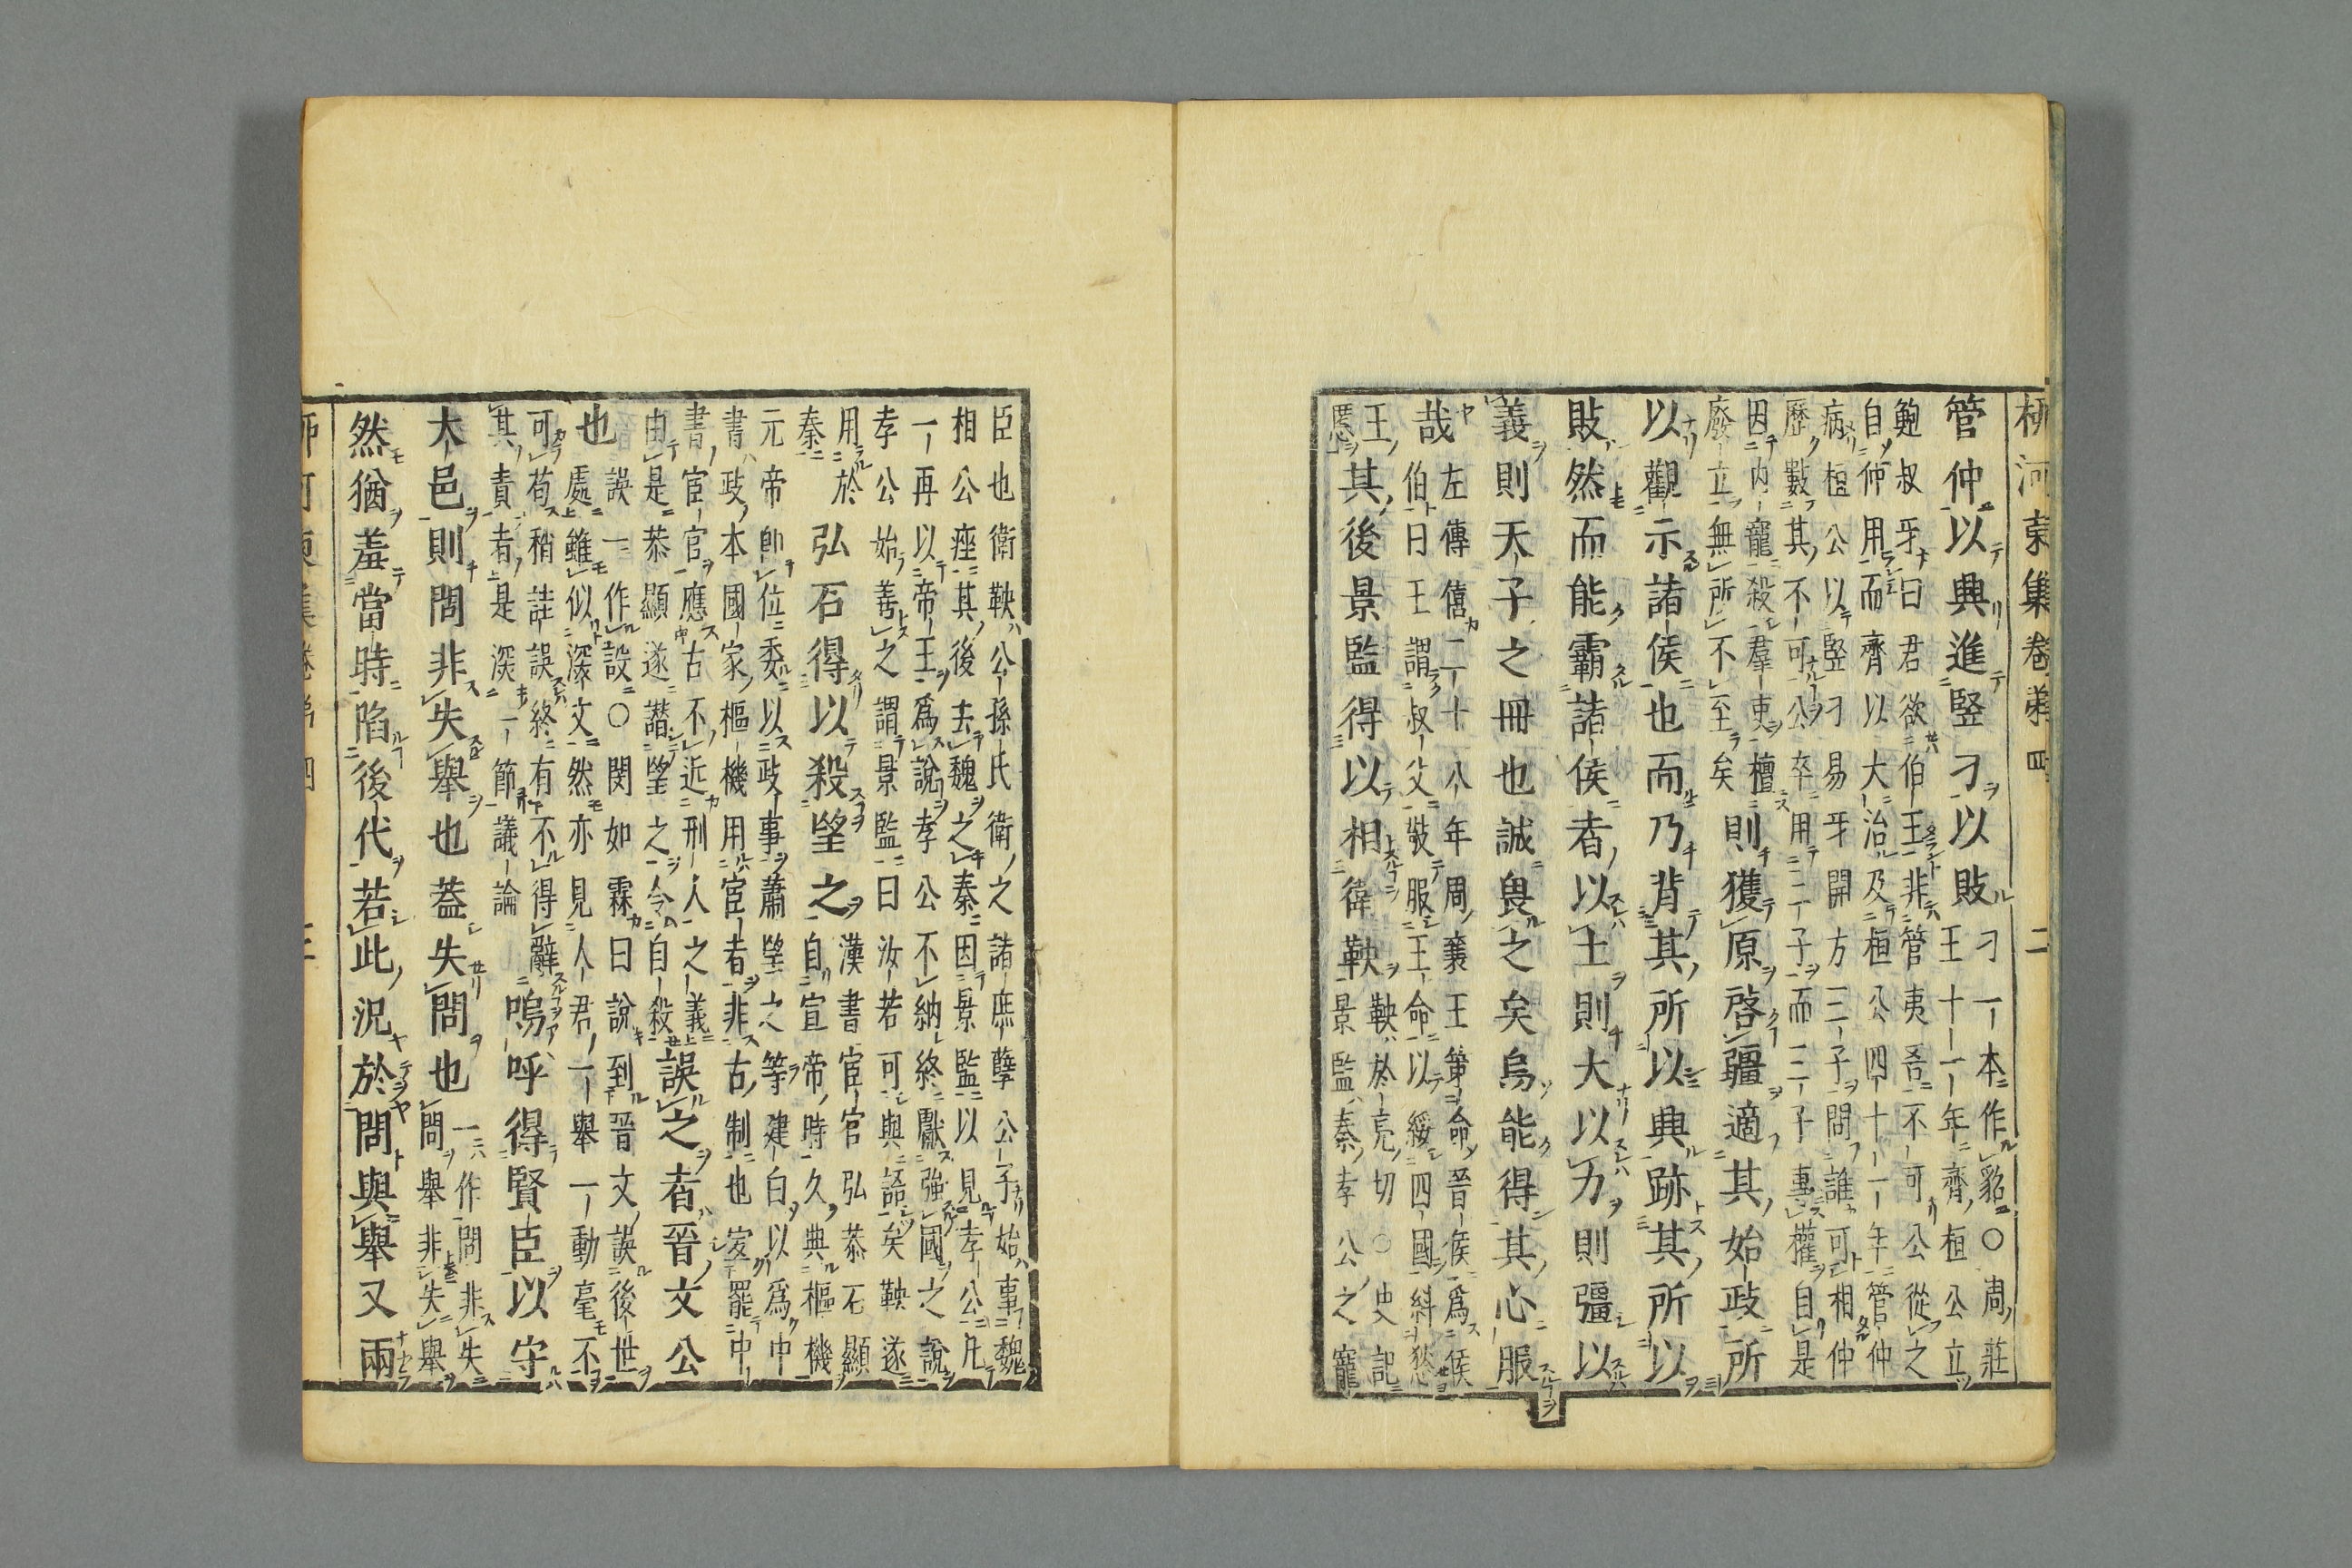 柳河東集卷第四 二
管仲以興進豎刁以敗
刁一本作貂○周莊
王十一年齊桓公立
鮑叔牙曰君欲伯王非管夷吾不可公從之
自仲用而齊以大治及桓公四十一年管仲
病桓公以豎刁易牙開方三子問誰可相仲
歷數其不可公卒用二子而二子專權自是
因内寵殺羣吏擅
廢立無所不至矣
則獲原啓疆適其始政所
以觀示諸侯也而乃背其所以興跡其所以
敗然而能霸諸侯者以土則大以力則彊以
義則天子之冊也誠畏之矣烏能得其心服
哉
左傳僖二十八年周襄王策命晉侯為侯
伯曰王謂叔父敬服王命以綏四國糾愁
王
慝
其後景監得以相衛鞅
鞅於亮切○史記
景監秦孝公之寵
臣也衛鞅公孫氏衛之諸庶孽公子始事魏
相公痤其後去魏之秦因景監以見孝公凡
一再以帝王爲說孝公不納終獻強國之說
孝公始善之謂景監曰汝若可與語矣鞅遂
用於
秦
弘石得以殺望之
漢書宦官弘恭石顯
自宣帝時久典樞機
元帝即位委以政事蕭望之等建白以爲中
書政本國家樞機用宦者非古制也宜罷中
書宦官應古不近刑人之義
由是恭顯遂譖望之令自殺
誤之者晉文公
也
誤一作設○閔如霖曰說到晉文誤後世
處雖似深文然亦見人君一舉一動毫不
可苟稍詿誤終有不得辭
其責者是深一節議論
嗚呼得賢臣以守
大邑則問非失舉也蓋失問也
一作問非失
問舉非失舉
然猶羞當時陷後代若此況於問與舉又兩